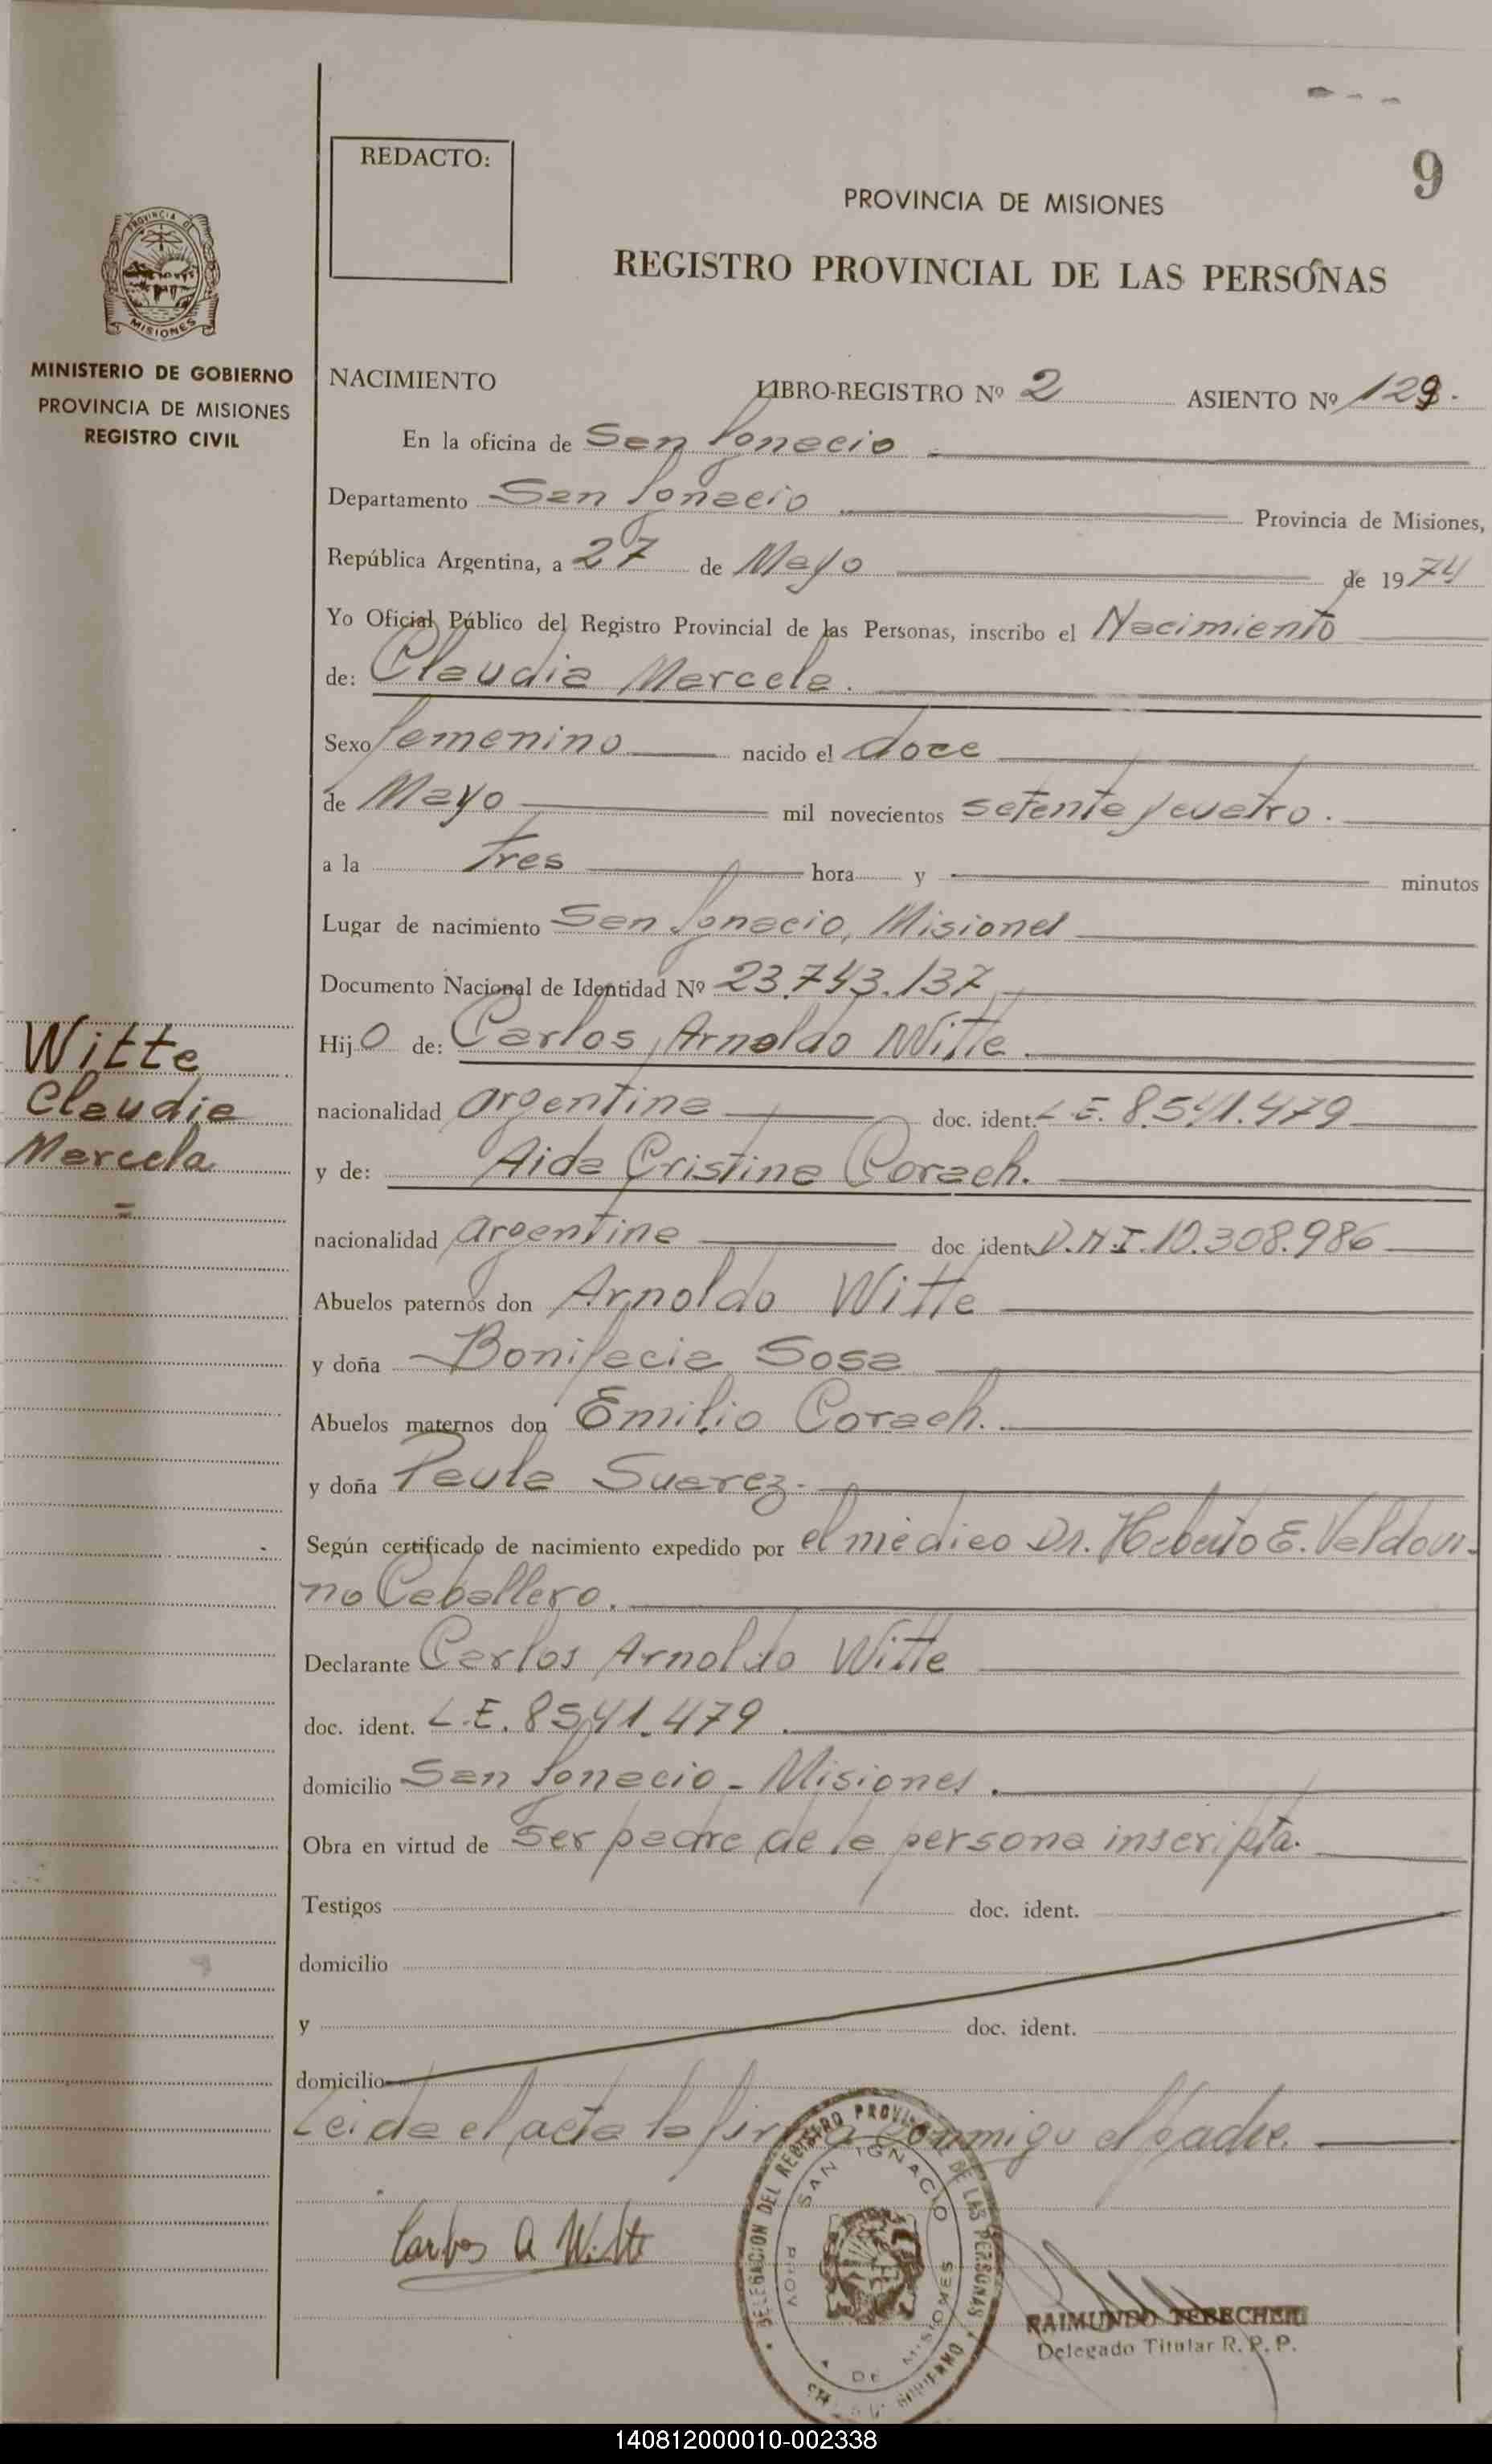 9
REDACTO:
PROVINCIA DE MISIONES
REGISTRO PROVINCIAL DE LAS PERSONAS
PROVINCIA DE
MISIONES
MINISTERIO DE GOBIERNO
PROVINCIA DE MISIONES
REGISTRO CIVIL
NACIMIENTO LIBRO-REGISTRO Nº 2 ASIENTO Nº 129.
En la oficina de San Ignacio
Departamento San Ignacio Provincia de Misiones,
República Argentina, a 27 de Mayo de 1974
Yo Oficial Público del Registro Provincial de las Personas, inscribo el Nacimiento
de: Claudia Marcela.
Sexo femenino nacido el doce
de Mayo mil novecientos setenta y cuatro.
a la tres hora y minutos
Lugar de nacimiento San Ignacio, Misiones
Documento Nacional de Identidad Nº 23.743.137
Hij O de: Carlos Arnoldo Witte
nacionalidad argentina doc. ident. L.E. 8.541.479
y de: Aida Cristina Corach.
nacionalidad argentina doc ident D.N.I. 10.308.986
Abuelos paternos don Arnoldo Witte
y doña Bonifacia Sosa
Abuelos maternos don Emilio Corach.
y doña Paula Suarez.
Según certificado de nacimiento expedido por el médico Dr. Heberto E. Valdovi-
no Caballero.
Declarante Carlos Arnoldo Witte
doc. ident. L.E. 8541.479.
domicilio San Ignacio - Misiones.
Obra en virtud de ser padre de la persona inscripta.
Testigos doc. ident.
domicilio
y doc. ident.
domicilio
Leida el acta la firma conmigo el padre.
Witte
Claudia
Marcela
=
Carlos A Witte
DELEGACION DEL REGISTRO PROVINCIAL DE LAS PERSONAS
SAN IGNACIO
PROV DE MISIONES
RAIMUNDO TEBECHERI
Delegado Titular R. P. P.
140812000010-002338